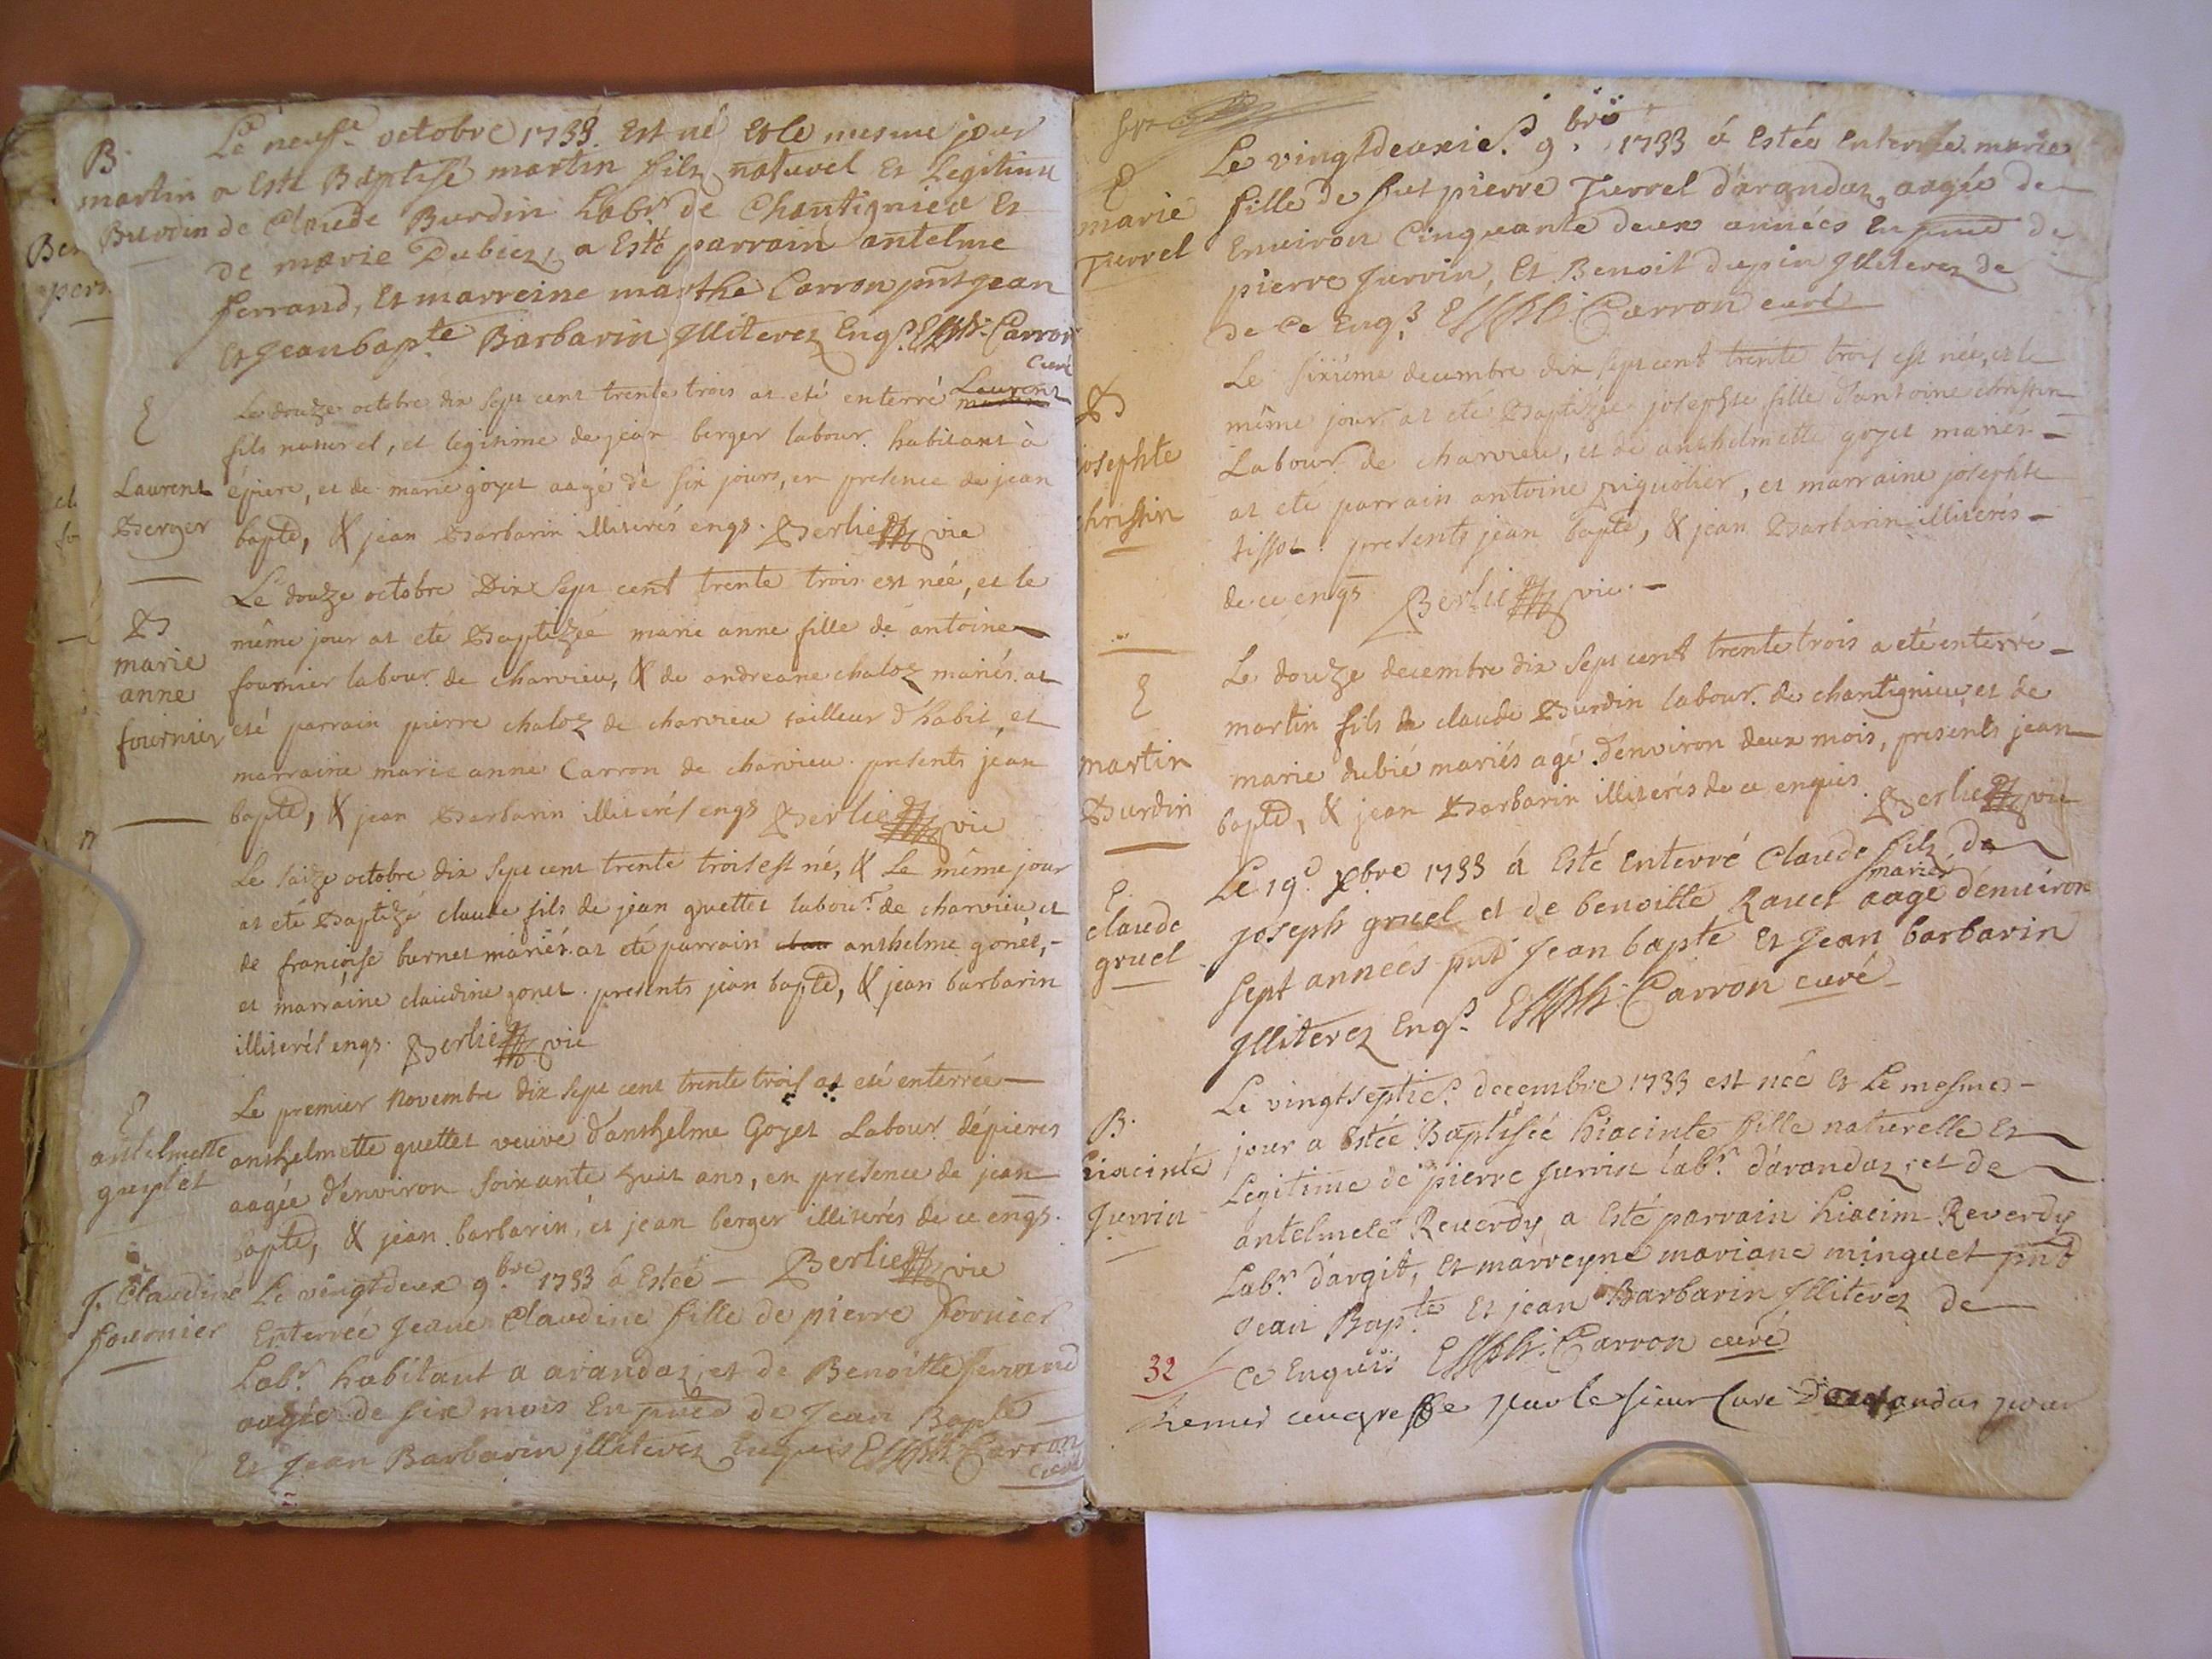 B.
martin
Burdin
Le neuf.e octobre 1733. Est né Et le mesme jour
a Esté Baptisé martin fils naturel Et Legitime
de Claude Burdin Lab.r de Chantignieu Et
de marie Dubiez, a Esté parrain antelme
ferrand, Et marreine marthe Carron pnt jean
Et Jean bap.te Barbarin Illiterez Enq.s Carron
curé
E
Laurent
Berger
Le douze octobre dix sept cent trente trois at eté enterré Laurent
fils naturel, et legitime de jean berger labour. habitant à
épiere, et de marie goyet aagé de six jours, en presence de jean
bapte, & jean Barbarin illiterés enqs. Berlie vic
B
marie
anne
fournier
Le douze octobre Dix sept cent trente trois est née, et le
même jour at eté Baptizée marie anne fille de antoine
fournier labour. de charvieu, & de andreane chaloz mariés. at
eté parrain pierre chaloz de charvieu tailleur d'habit, et
marraine marie anne Carron de charvieu. presents jean
bapte, & jean Barbarin illiterés enqs Berlie vic
Le saize octobre dix sept cent trente trois est né, & Le même jour
at eté Baptizé claude fils de jean quettet labour.r de charvieu, et
de françoise burnet mariés. at eté parrain anthelme gonet,
et marraine claudine gonet. presents jean bapte, & jean barbarin
illiterés enqs. Berlie vic
E
antelmette
Le premier Novembre dix sept cent trente trois at eté enterrée
anthelmette quettet veuve d'anthelme Goyet Labour. dépieres
aagée d'environ soixante huit ans, en presence de jean
bapte, & jean barbarin, et jean berger illiterés de ce enqs.
Berlie vic
J. Claudine
fournier
Le vingtdeux 9.bre 1733 á Estéé
Enterrée Jeane Claudine fille de pierre fornier
Lab.r habitant a arandaz, et de Benoitte ferrand
aagée de six mois En pnce de Jean Bapte
Et Jean Barbarin illiterez Enquis Carron
curé
E
marie
Jurrel
Le vingtdeuxie. 9.bre 1733 á Estée Enterrée marie
fille de fut pierre Jurrel d'arandaz, aagée de
Environ Cinquante deux années En pnce de
pierre Jurvin, Et Benoit dupin Illiterez de
de Ce Enq.s Carron curé
B
josephte
christin
Le sixième decembre dix sept cent trente trois est née, et le
même jour at eté Baptizée josephte fille d'antoine christin
Labour. de charvieu, et de anthelmette goyet mariés.
at eté parrain antoine piquolier, et marraine josephte
tissot. presents jean bapte, & jean Barbarin illiterés
de ce enqs Berlie vic.
E
martin
Burdin
Le douze decembre dix sept cent trente trois a eté enterré
martin fils de claude Burdin labour. de chantignieu, et de
marie dubié mariés agé d'environ deux mois, presents jean
bapte, & jean Barbarin illiterés de ce enquis. Berlie vic
E.
claude
gruel
Le 19.e xbre 1733 á Esté Enterré Claude fils de
joseph gruel et de benoitte Ravet mariés aagé d'enuiron
sept années pnt Jean bapte Et Jean barbarin
Illiterez Enq.s Carron curé
B.
hiacinte
Jurvin
Le vingtseptie. decembre 1733 est née Et Le mesme
jour a Estée Baptisée hiacinte fille naturelle Et
Legitime de pierre Jurvin lab.r d'arandaz, et de
antelmete Reverdy a Esté parrain hiacim Reverdy
Lab.r d'argit, Et marreyne mariane minguet pnt
Jean Bap.te Et jean Barbarin Illiterez de
Ce Enquis Carron curé
32
Remis au greffe par le sieur Curé D'arandas pour